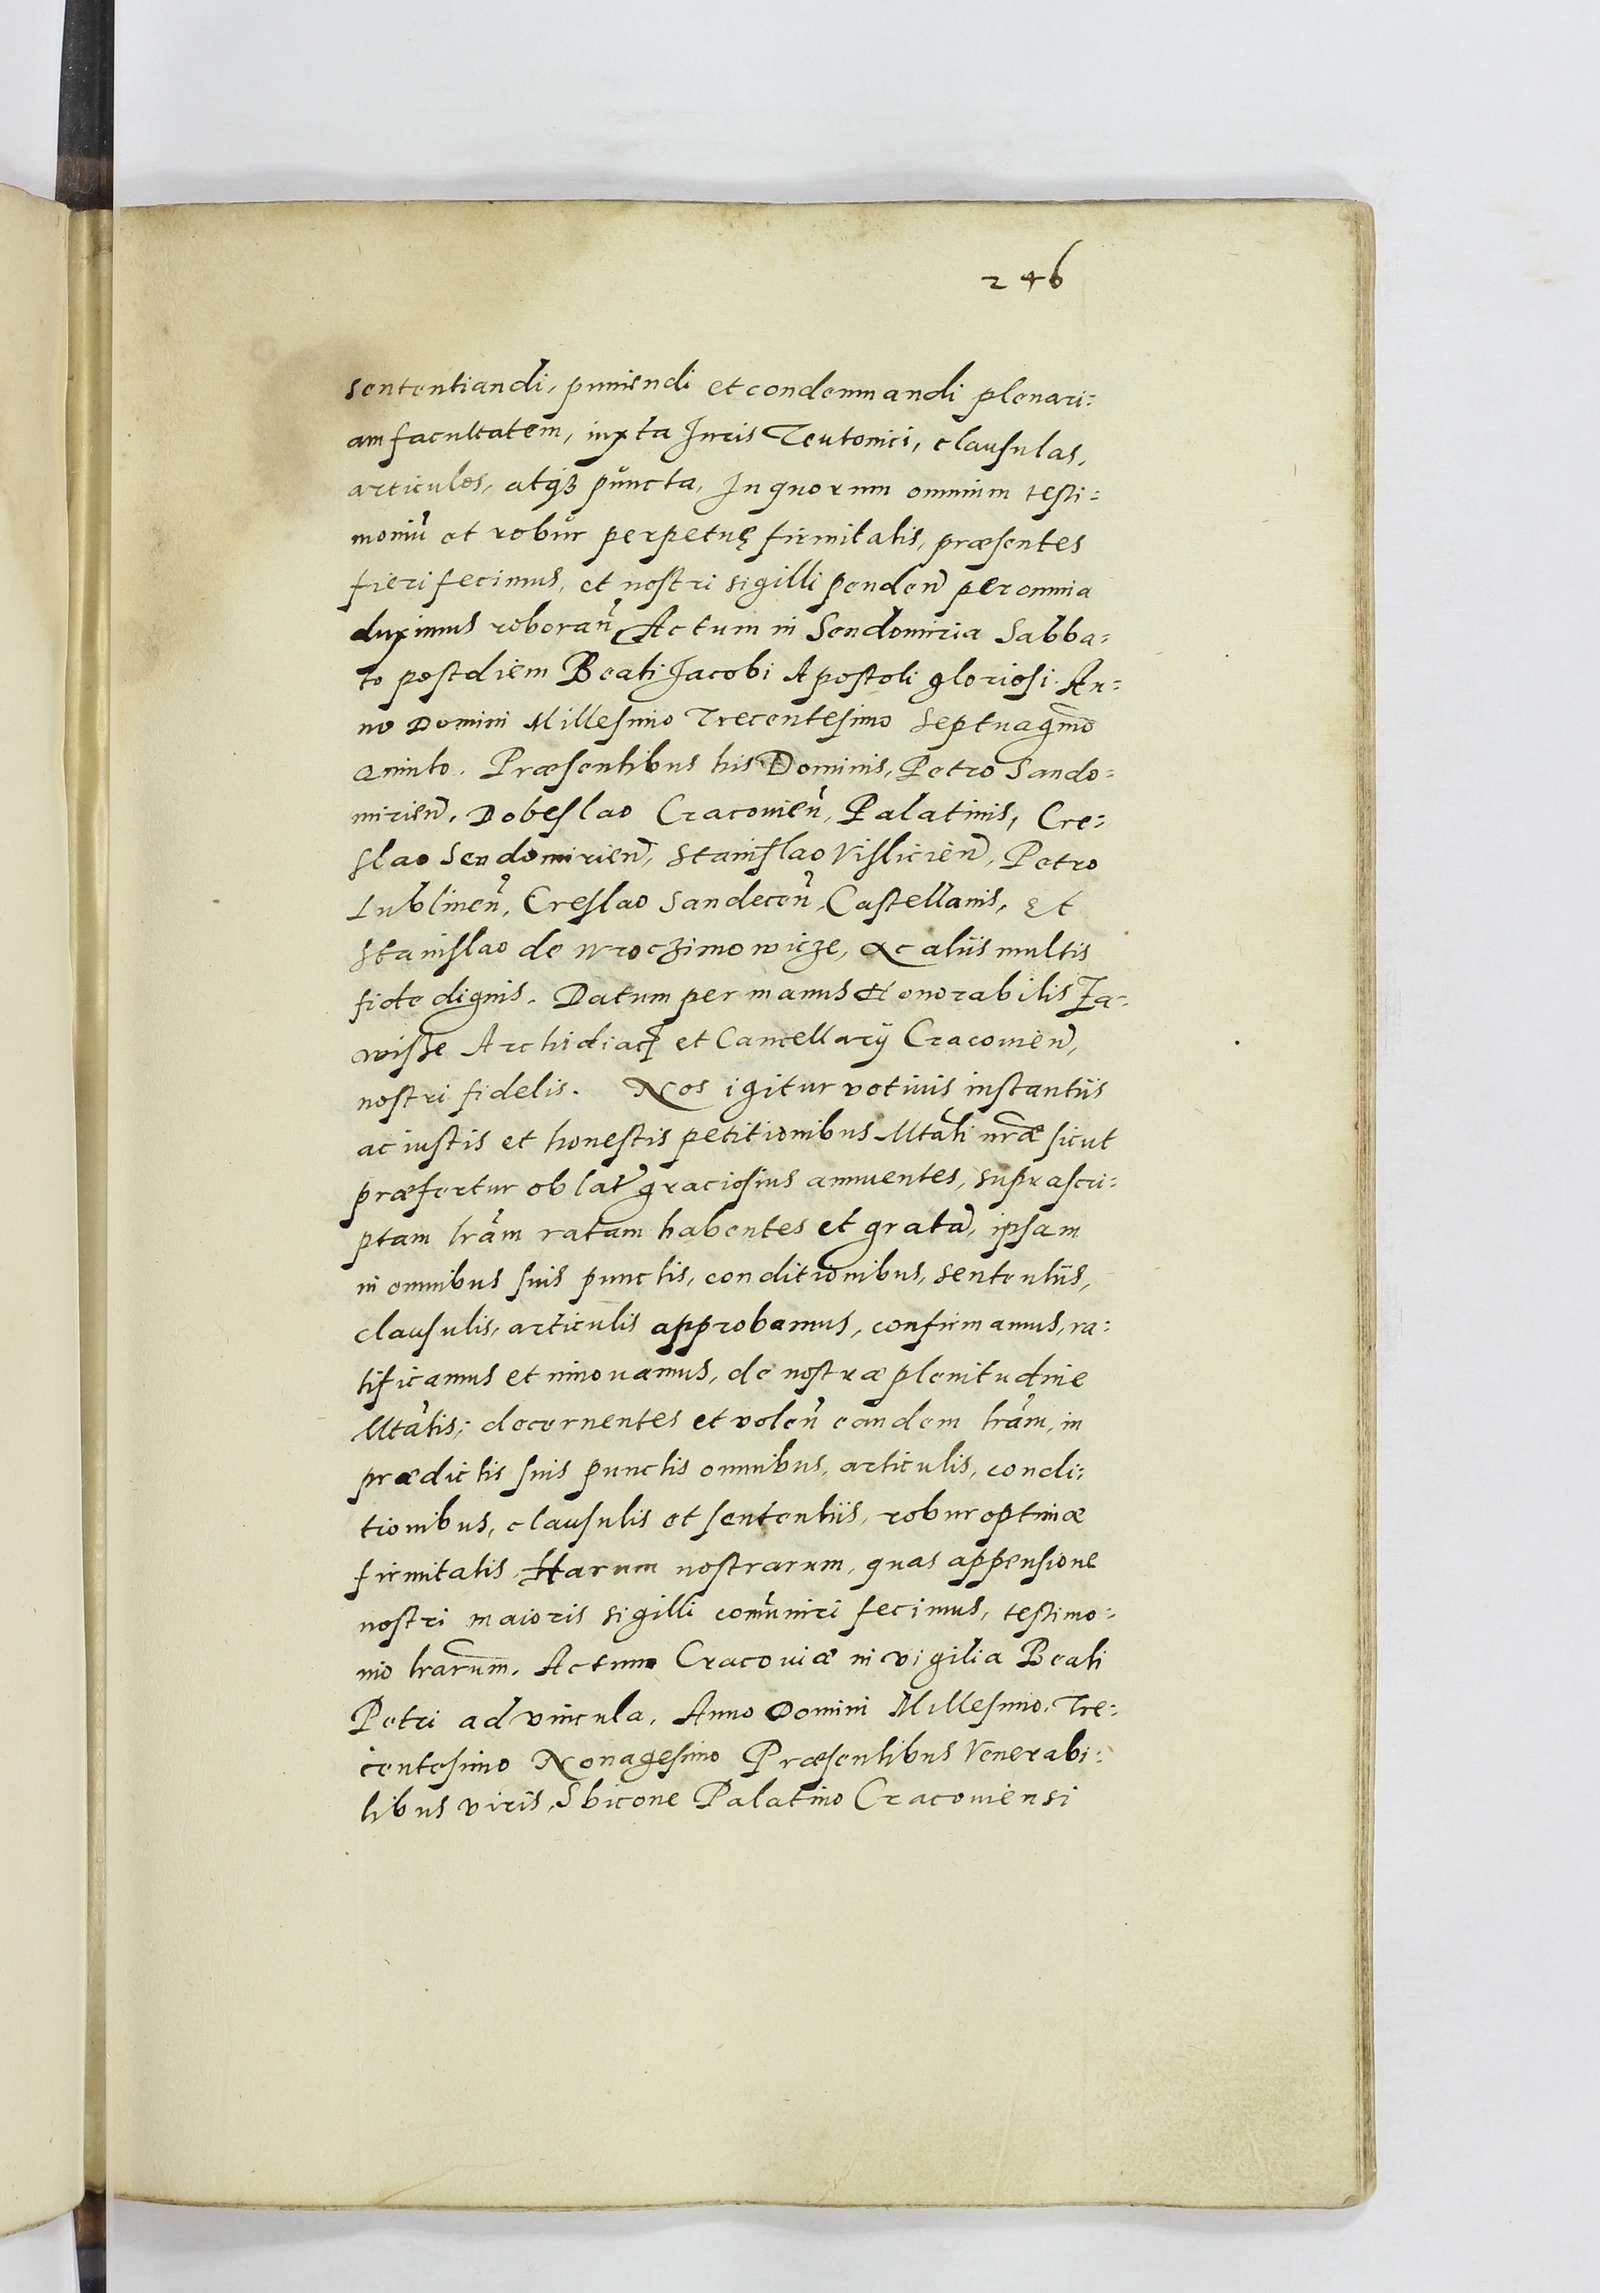 246
sententiandi, puniendi et condemnandi plenari:
am facultatem, iuxta Juris Teutonici, clausulas,
articulos, atqꝫ puncta, In quorum omnium testi:
moniū et robur perpetuę firmitatis, præsentes
fieri fecimus, et nostri sigilli penden̄ per omnia
duximus roboran̄ Actum in Sendomiria Sabba:
to post diem Beati Jacobi Apostoli gloriosi. An:
no Domini Millesimo Trecentesimo Septuagmo
Quinto. Præsentibus his Dominis, Petro Sando:
mirien̄, Dobeslao Cracovien̄, Palatinis, Cre:
slao Sendomirien̄, Stanislao Vislicien̄, Petro
Lublinen̄, Creslao Sandecen̄, Castellanis, Et
Stanislao de Wroczimowicze, Ac aliis multis
fide dignis. Datum per manus Honorabilis Za:
wisse Archidiaci et Cancellarij Cracovien̄,
nostri fidelis. Nos igitur votivis instantiis
ac iustis et honestis petitionibus Mtāti nr̄æ sicut
præfertur oblat̄ graciosius annuentes, suprascri:
ptam lrām ratam habentes et gratā, ipsam
in omnibus suis punctis, conditionibus, sententiis,
clausulis, articulis approbamus, confirmamus, ra:
tificamus et innovamus, de nostræ plenitudine
Mtātis; decernentes et volen̄ eandem lrām, in
prædictis suis punctis omnibus, articulis, condi:
tionibus, clausulis et sententiis, robur optinæ
firmitatis, Harum nostrarum, quas appensione
nostri maioris sigilli comūniri fecimus, testimo:
nio lrārum. Actum Cracoviæ in vigilia Beati
Petri ad vincula, Anno Domini Millesimo, Tre:
centesimo Nonagesimo Præsentibus Venerabi:
libus viris, Sbicone Palatino Cracoviensi